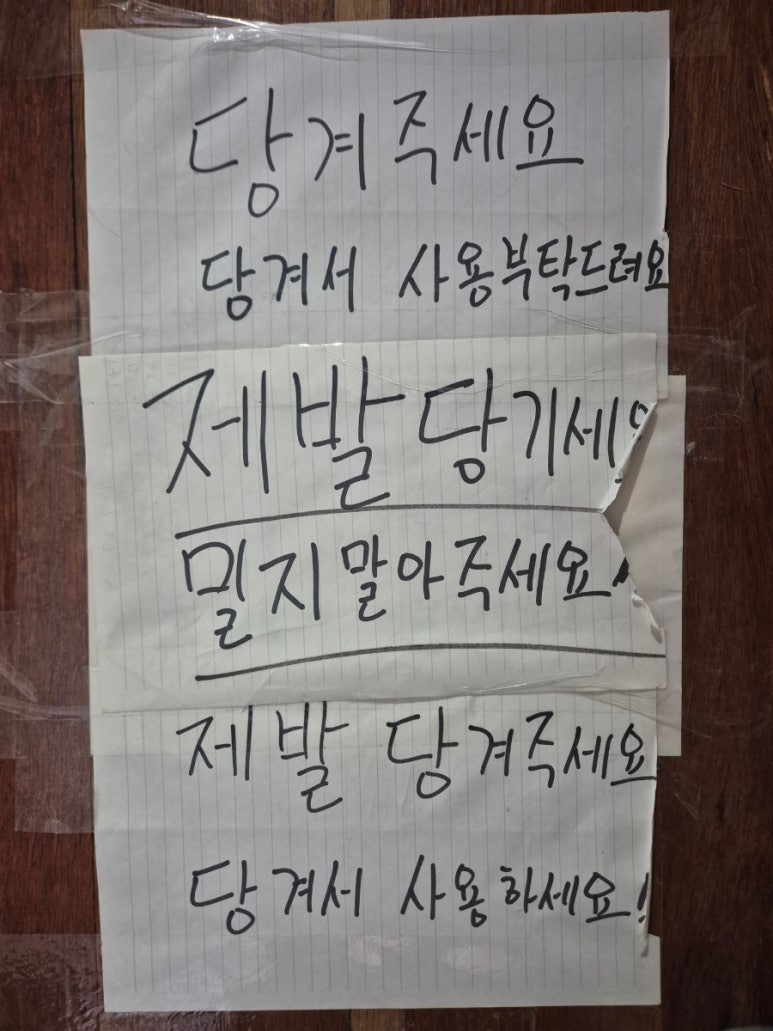 당겨주세요
당겨서 사용부탁드려요
제발 당기세요
밀지말아주세요
제발 당겨주세요
당겨서 사용하세요!